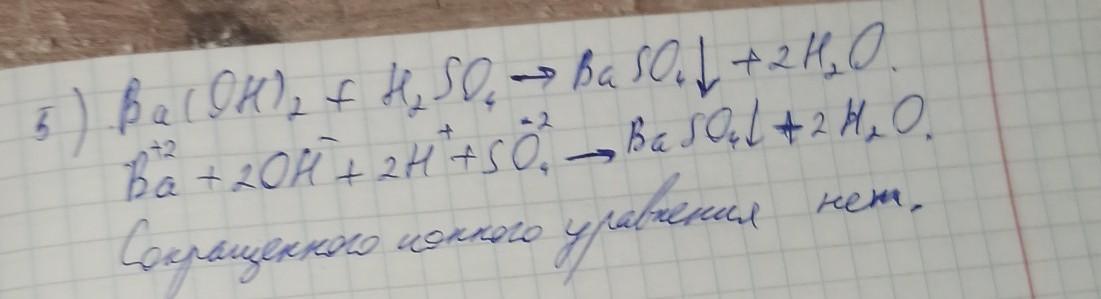 5) Ba(OH)₂ + H₂SO₄ → BaSO₄↓ + 2H₂O.
Ba⁺² + 2OH⁻ + 2H⁺ + SO₄⁻² → BaSO₄↓ + 2H₂O.
Сокращенного ионного уравнения нет.